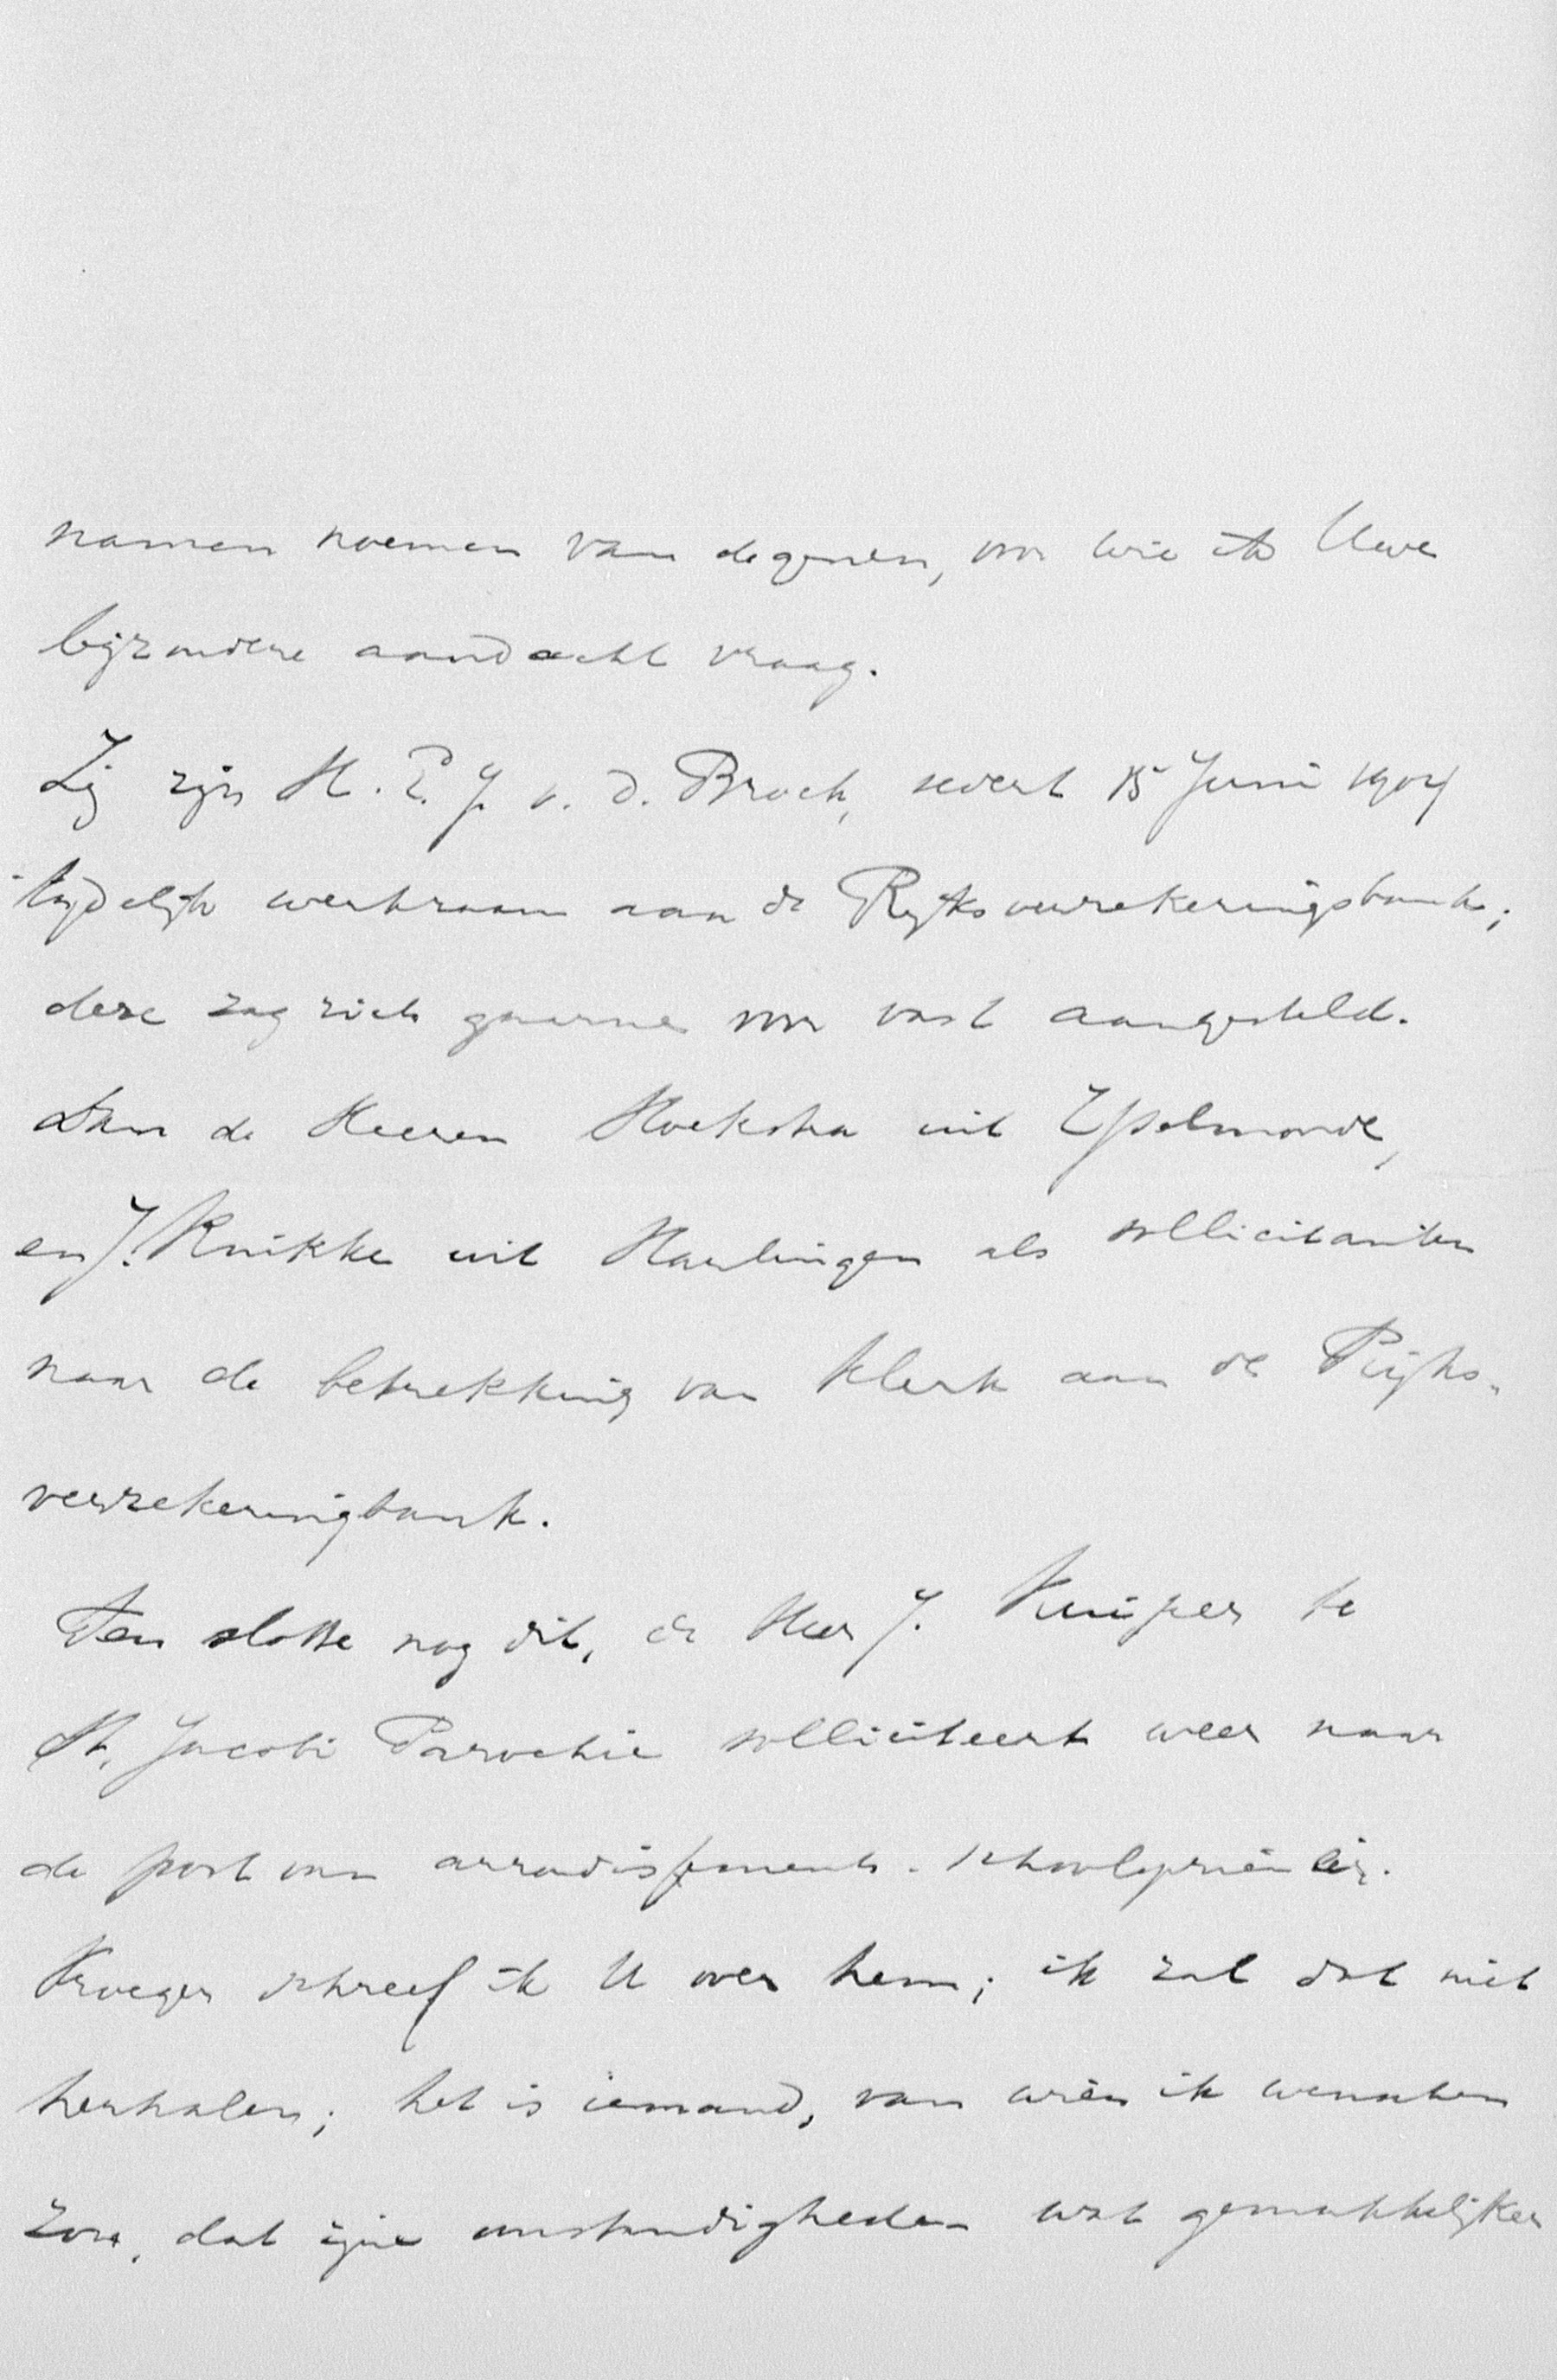 namen noemen van degenen, voor wie ik Uwe
bijzondere aandacht vraag.
Zij zijn H. P. J. v. d. Broek, sedert 15 Juni 1904
tijdelijk werkzaam aan de Rijksverzekeringsbank;
deze zag zich gaarne voor vast aangesteld.
Dan de Heeren Hoekstra uit IJsselmonde,
en J. Knikke uit Harlingen als sollicitanten
naar de betrekking van klerk aan de Rijks-
verzekeringbank.
Ten slotte nog dit, de Heer J. Kuiper te
St. Jacobi Parochie solliciteert weer naar
de post van arrondissements-schoolopziener.
Vroeger schreef ik U over hem; ik zal dat niet
herhalen; het is iemand, van wien ik wenschen
zou, dat zijne omstandigheden wat gemakkelijker